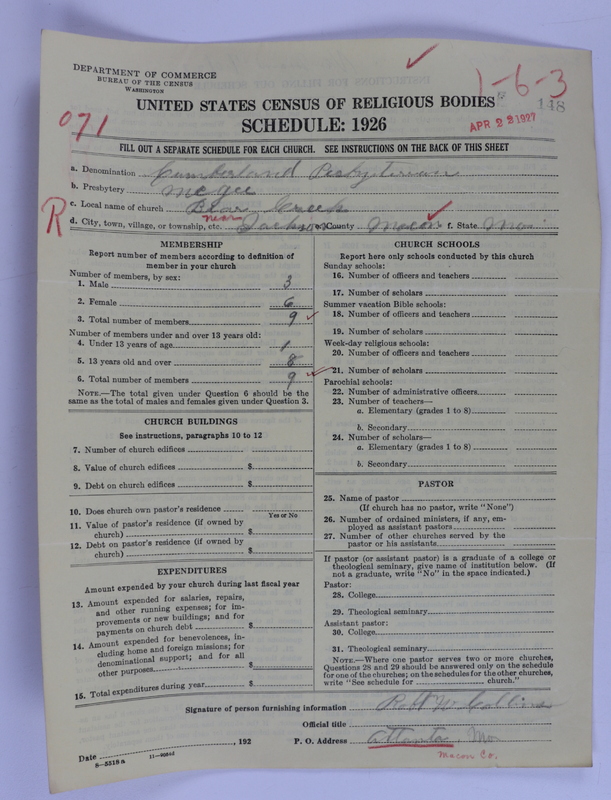 DEPARTMENT OF COMMERCE
BUREAU OF THE CENSUS
WASHINGTON
1-6-3
148
071
UNITED STATES CENSUS OF RELIGIOUS BODIES
SCHEDULE: 1926
APR 22 1927
FILL OUT A SEPARATE SCHEDULE FOR EACH CHURCH. SEE INSTRUCTIONS ON THE BACK OF THIS SHEET
a. Denomination Cumberland Presbyterian
b. Presbytery McGee
c. Local name of church Bear Creek
R
d. City, town, village, or township, etc. near Jackson e. County Macon f. State Mo
MEMBERSHIP
Report number of members according to definition of
member in your church
Number of members, by sex:
1. Male 3
2. Female 6
3. Total number of members 9
Number of members under and over 13 years old:
4. Under 13 years of age 1
5. 13 years old and over 8
6. Total number of members 9
NOTE.—The total given under Question 6 should be the
same as the total of males and females given under Question 3.
CHURCH BUILDINGS
See instructions, paragraphs 10 to 12
7. Number of church edifices
8. Value of church edifices $
9. Debt on church edifices $
10. Does church own pastor's residence
Yes or No
11. Value of pastor's residence (if owned by
church) $
12. Debt on pastor's residence (if owned by
church) $
EXPENDITURES
Amount expended by your church during last fiscal year
13. Amount expended for salaries, repairs,
and other running expenses; for im-
provements or new buildings; and for
payments on church debt $
14. Amount expended for benevolences, in-
cluding home and foreign missions; for
denominational support; and for all
other purposes $
15. Total expenditures during year $
CHURCH SCHOOLS
Report here only schools conducted by this church
Sunday schools:
16. Number of officers and teachers
17. Number of scholars
Summer vacation Bible schools:
18. Number of officers and teachers
19. Number of scholars
Week-day religious schools:
20. Number of officers and teachers
21. Number of scholars
Parochial schools:
22. Number of administrative officers
23. Number of teachers—
a. Elementary (grades 1 to 8)
b. Secondary
24. Number of scholars—
a. Elementary (grades 1 to 8)
b. Secondary
PASTOR
25. Name of pastor
(If church has no pastor, write "None")
26. Number of ordained ministers, if any, em-
ployed as assistant pastors
27. Number of other churches served by the
pastor or his assistants
If pastor (or assistant pastor) is a graduate of a college or
theological seminary, give name of institution below. (If
not a graduate, write "No" in the space indicated.)
Pastor:
28. College
29. Theological seminary
Assistant pastor:
30. College
31. Theological seminary
NOTE.—Where one pastor serves two or more churches,
Questions 28 and 29 should be answered only on the schedule
for one of the churches; on the schedules for the other churches,
write "See schedule for church."
Signature of person furnishing information Robt W Collins
Official title
Date , 192 P. O. Address Atlanta, Mo
8-5518 a
Macon Co.